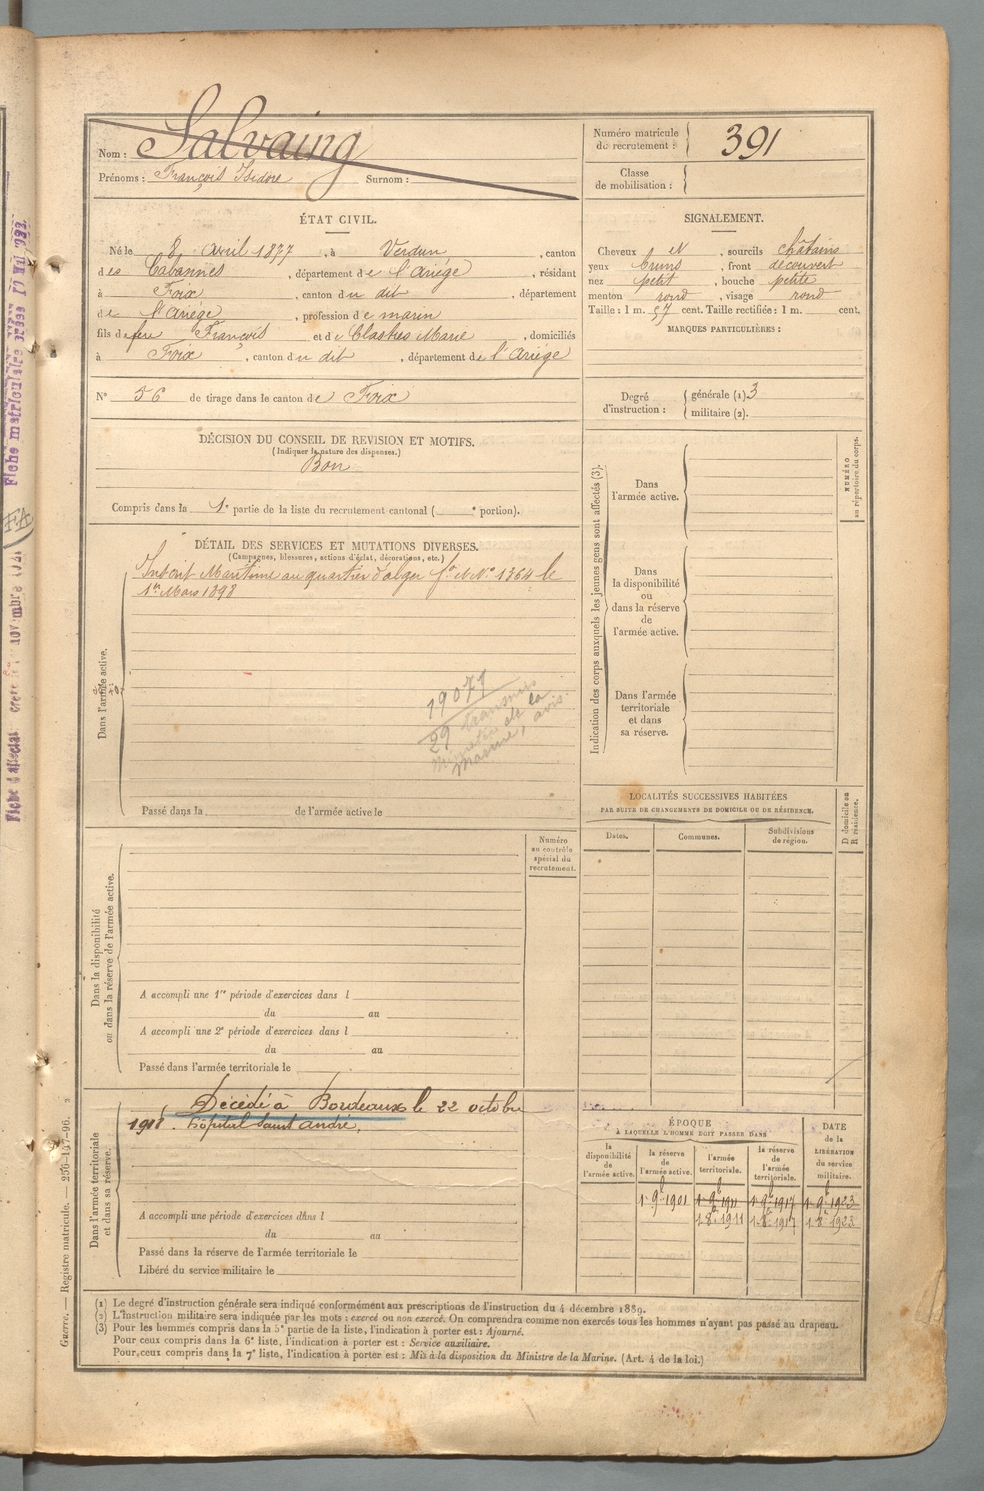 Nom : Salvaing
Prénoms : François Isidore Surnom :
Numéro matricule de recrutement : 391
Classe de mobilisation :
ÉTAT CIVIL.
Né le 8 avril 1877, à Verdun, canton
des Cabannes, département de l'Ariége, résidant
à Foix, canton du dit, département
de l'Ariége, profession de marin
fils de feu François et de Clastres Marie, domiciliés
à Foix, canton du dit, département de l'Ariége
N° 56 de tirage dans le canton de Foix
SIGNALEMENT.
Cheveux et, sourcils châtains
yeux bruns, front découvert
nez petit, bouche petite
menton rond, visage rond
Taille : 1 m. 57 cent. Taille rectifiée : 1 m. cent.
MARQUES PARTICULIÈRES :
Degré d'instruction : générale (1). 3
militaire (2).
DÉCISION DU CONSEIL DE REVISION ET MOTIFS.
(Indiquer la nature des dispenses.)
Bon
Compris dans la 1e partie de la liste du recrutement cantonal ( e portion).
DÉTAIL DES SERVICES ET MUTATIONS DIVERSES.
(Campagnes, blessures, actions d'éclat, décorations, etc.)
Dans l'armée active.
Inscrit Maritime au quartier d'alger fo et No 1364 le
1er Mars 1898
19071
29 transmis
Ministre de la
Marine, avis
Passé dans la de l'armée active le
Indication des corps auxquels les jeunes gens sont affectés (3).
NUMÉRO
au répertoire du corps.
Dans
l'armée active.
Dans
la disponibilité
ou
dans la réserve
de
l'armée active.
Dans l'armée
territoriale
et dans
sa réserve.
LOCALITÉS SUCCESSIVES HABITÉES
PAR SUITE DE CHANGEMENTS DE DOMICILE OU DE RÉSIDENCE.
D domicile ou
R résidence.
Dates. Communes. Subdivisions de région.
Dans la disponibilité
ou dans la réserve de l'armée active.
Numéro
au contrôle
spécial du
recrutement.
A accompli une 1re période d'exercices dans l
du au
A accompli une 2e période d'exercices dans l
du au
Passé dans l'armée territoriale le
Dans l'armée territoriale
et dans sa réserve.
Décédé à Bordeaux le 22 octobre
1918. hôpital Saint André.
A accompli une période d'exercices dans l
du au
Passé dans la réserve de l'armée territoriale le
Libéré du service militaire le
ÉPOQUE
À LAQUELLE L'HOMME DOIT PASSER DANS
la disponibilité de l'armée active.
la réserve de l'armée active.
l'armée territoriale.
la réserve de l'armée territoriale.
DATE de la LIBÉRATION du service militaire.
1. 9b 1901 1. 9b 1911 1. 9b 1917 1. 9b 1923
1. 8b 1911 1. 8b 1917 1. 8 1923
(1) Le degré d'instruction générale sera indiqué conformément aux prescriptions de l'instruction du 4 décembre 1889.
(2) L'instruction militaire sera indiquée par les mots : exercé ou non exercé. On comprendra comme non exercés tous les hommes n'ayant pas passé au drapeau.
(3) Pour les hommes compris dans la 5e partie de la liste, l'indication à porter est : Ajourné.
Pour ceux compris dans la 6e liste, l'indication à porter est : Service auxiliaire.
Pour ceux compris dans la 7e liste, l'indication à porter est : Mis à la disposition du Ministre de la Marine. (Art. 4 de la loi.)
Guerre. — Registre matricule. — 256-147-96. 2
Fiche matriculaire
FA
Fiche d'affectat
novembre